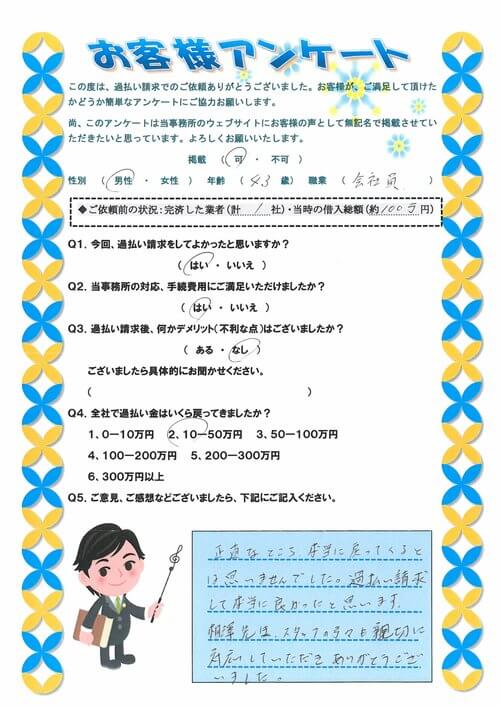 お客様アンケート
この度は、過払い請求でのご依頼ありがとうございました。お客様が、ご満足して頂けた
かどうか簡単なアンケートにご協力お願いします。
尚、このアンケートは当事務所のウェブサイトにお客様の声として無記名で掲載させてい
ただきたいと思っています。よろしくお願いいたします。
掲載 ( 可 ・ 不可 )
性別 ( 男性 ・ 女性 ) 年齢 ( 43 歳) 職業 ( 会社員 )
◆ご依頼前の状況:完済した業者(計 1 社)・当時の借入総額(約100万円)
Q1. 今回、過払い請求をしてよかったと思いますか?
( はい ・ いいえ )
Q2. 当事務所の対応、手続費用にご満足いただけましたか?
( はい ・ いいえ )
Q3. 過払い請求後、何かデメリット(不利な点)はございましたか?
( ある ・ なし )
ございましたら具体的にお聞かせください。
( )
Q4. 全社で過払い金はいくら戻ってきましたか?
1、0-10万円 2、10-50万円 3、50-100万円
4、100-200万円 5、200-300万円
6、300万円以上
Q5. ご意見、ご感想などございましたら、下記にご記入ください。
正直なところ、本当に戻ってくると
は思いませんでした。過払い請求
して本当に良かったと思います。
相澤先生、スタッフの方々も親切に
対応していただきありがとうござ
いました。